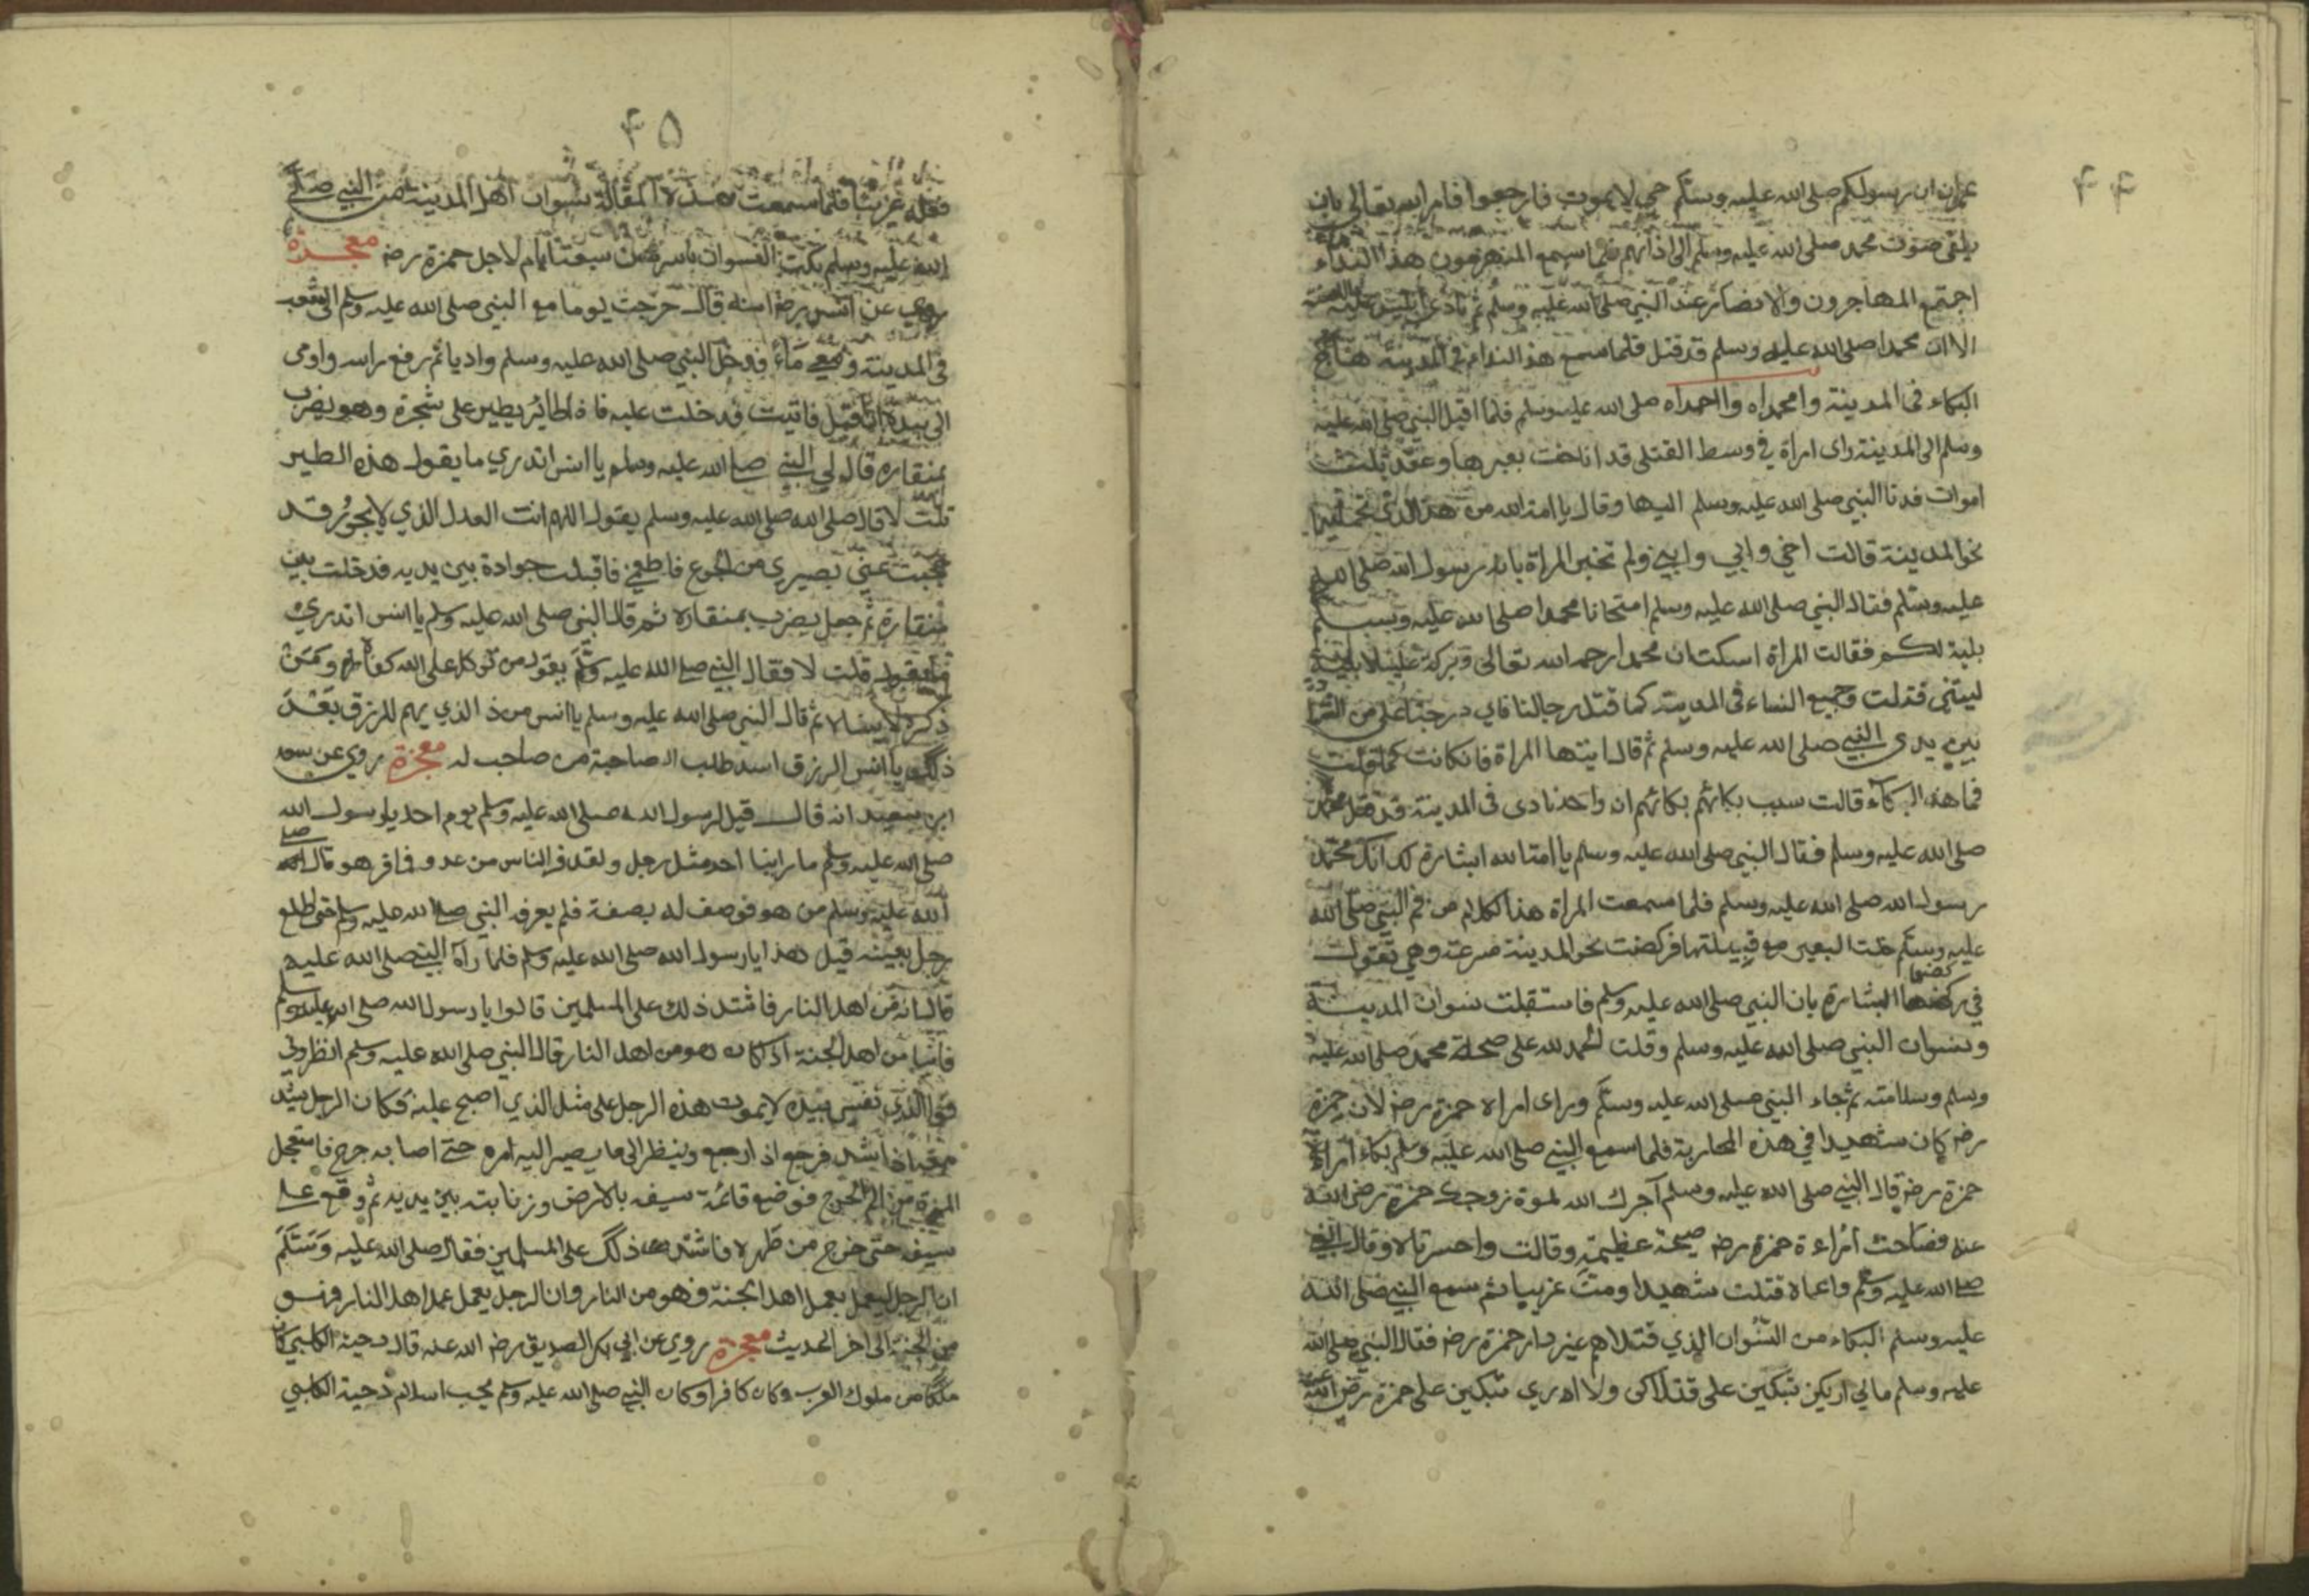 ۴۴
ان رسولكم صلى الله عليه وسلم حي لا يموت فارجعوا فامر الله تعالى بان
يلقى صوت محمد صلى الله عليه وسلم الى اذانهم فلما سمع المنهزمون هذا النداء
اجتمع المهاجرون والانصار عند النبي صلى الله عليه وسلم ثم نادى ابليس عليه اللعنة
الا ان محمدا صلى الله عليه وسلم قد قتل فلما سمع هذ النداء في المدينة هاج
البكاء فى المدينة وامحمداه وااحمداه صلى الله عليه وسلم فلما اقبل النبي صلى الله عليه
وسلم الى المدينة راى امراة في وسط القتلى قد اناخت بعيرها وعقد ثلث
اموات فدنا النبي صلى الله عليه وسلم اليها وقال يا امة الله من هذ الذي تحملين
نحو المدينة قالت اخي وابي وابني ولم تخبر المراة بانه رسول الله صلى الله
عليه وسلم فقال النبي صلى الله عليه وسلم امتحانا محمدا صلى الله عليه وسلم
بلية لكم فقالت المراة اسكت ان محمدا رحمه الله تعالى وبركة علينا لا بلية
ليتني قتلت وجميع النساء فى المدينة كما قتل رجالنا فاي درجة اعلى من
بين يدى النبي صلى الله عليه وسلم ثم قال ايتها المراة فان كانت كما قلت
فما هذ البكاء قالت سبب بكائهم بكائهم ان واحد نادى فى المدينة قد قتل محمد
صلى الله عليه وسلم فقال النبي صلى الله عليه وسلم يا امة الله ابشارة لك انك محمد
رسول الله صلى الله عليه وسلم فلما سمعت المراة هذا كلام من فم النبي صلى الله
عليه وسلم خلت البعير مع قبيلتها فركضت نحو المدينة سرعة وهي تقول
في ركضها البشارة بان النبي صلى الله عليه وسلم فاستقبلت نسوان المدينة
ونسوان النبي صلى الله عليه وسلم وقلت الحمد لله على صحة محمد صلى الله عليه
وسلم وسلامته ثم جاء النبي صلى الله عليه وسلم وراى امراة حمزة رضه لان حمزة
رضه كان شهيدا في هذه المحاربة فلما سمع النبي صلى الله عليه وسلم بكاء امراة
حمزة رضه قال النبي صلى الله عليه وسلم آجرك الله لموة زوجك حمزة رضى الله
عنه فصاحت امراءة حمزة رضه صيحة عظيمة وقالت واحسرتاه وقال النبي
صلى الله عليه وسلم واعماه قتلت شهيدا ومت غريبا ثم سمع النبي صلى الله
عليه وسلم البكاء من النسوان الذي قتلاهم غير دار حمزة رضه فقال النبي صلى الله
عليه وسلم مالي اريكن تبكين على قتلاكن ولا ادري تبكين على حمزة رضى الله عنه
۴۵
غريبا فلما سمعت هذه المقالة نسوان اهل المدينة من النبي صلى
الله عليه وسلم بكت النسوان باسرهن سبعة ايام لاجل حمزة رضه معجزة
روي عن انس رضه انه قال خرجت يوما مع النبي صلى الله عليه وسلم الى الشعب
فى المدينة ومعي ماء فدخل النبي صلى الله عليه وسلم واديا ثم رفع راسه واومى
الى بيده اقبل فاتيت فدخلت عليه فاذا طائر يطير على شجرة وهو يضرب
بمنقاره قال لي النبي صلى الله عليه وسلم يا انس اتدري ما يقول هذه الطير
قلت لا قال صلى الله عليه وسلم يقول اللهم انت العدل الذي لا يجور قد
حجبت عني بصيري من الجوع فاطعمني فاقبلت جرادة بين يديه فدخلت بين
منقارة ثم جعل يضرب بمنقاره ثم قال النبي صلى الله عليه وسلم يا انس اتدري
ما يقول قلت لا فقال النبي صلى الله عليه وسلم يقول من توكل على الله كفاه ومن
ذكره لا ينساه ثم قال النبي صلى الله عليه وسلم يا انس من ذ الذي يهم للرزق بعد
ذلك يا انس الرزق اسد طلب ا صاحبة من صاحب له معجزة روي عن سعد
ابن سعيد انه قال قيل لرسول الله صلى الله عليه وسلم يوم احد يا رسول الله
صلى الله عليه وسلم ما راينا احد مثل رجل ولقد فر الناس من عدو فما فر هو قال صلى
الله عليه وسلم من هو فوصف له بصفة فلم يعرف النبي صلى الله عليه وسلم حتى طلع
رجل بعينه قيل هذا يا رسول الله صلى الله عليه وسلم فلما رآه النبي صلى الله عليه
قال انه من اهل النار فاشتد ذلك على المسلمين قالوا يا رسول الله صلى الله عليه وسلم
فاينا من اهل الجنة اذ كان هو من اهل النار قال النبي صلى الله عليه وسلم انظروني
فوالذي نفسي بيده لا يموت هذه الرجل على مثل الذي اصبح عليه فكان الرجل يشد
فرجع اذ ارجع وينظر الى ما يصير اليه امره حتى اصابه جرح فاستعجل
من الم الجرح فوضع قائمة سيفه بالارض وزنابته بين يديه ثم وقع على
سيفه حتى خرج من ظهره فاشتد ذلك على المسلمين فقال صلى الله عليه وسلم
ان الرجل ليعمل بعمل اهل الجنة وهو من النار وان الرجل يعمل عمل اهل النار وهو
من الجنة الى اخر الحديث معجزة روي عن ابي بكر الصديق رضه الله عنه قال دحية الكلبي كان
ملكا من ملوك العرب وكان كافرا وكان النبي صلى الله عليه وسلم يحب اسلام دحية الكلبي